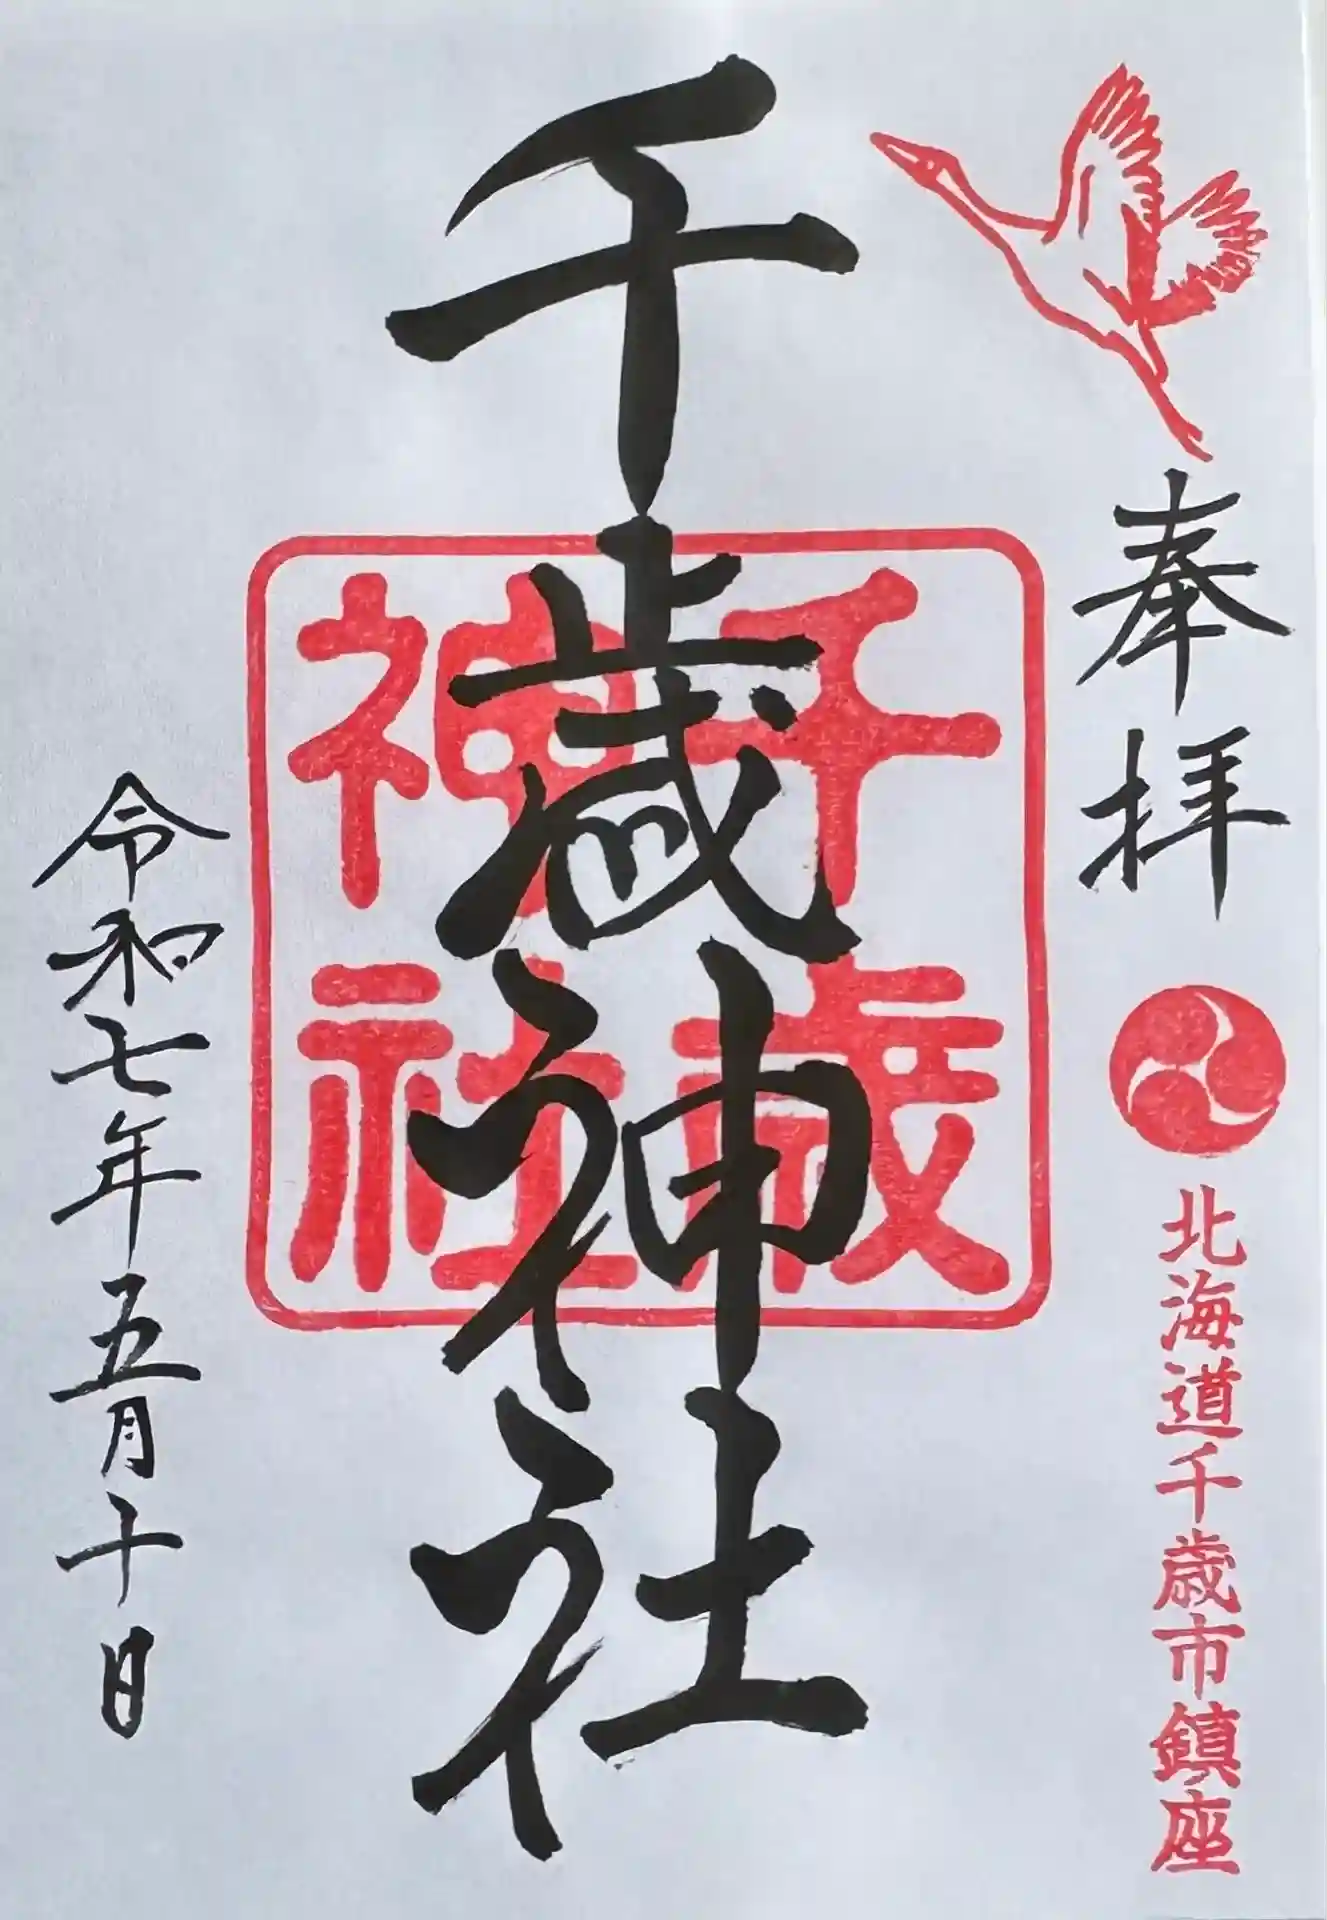 奉拝
北海道千歳市鎮座
千歳神社
千歳
神社
令和七年五月十日